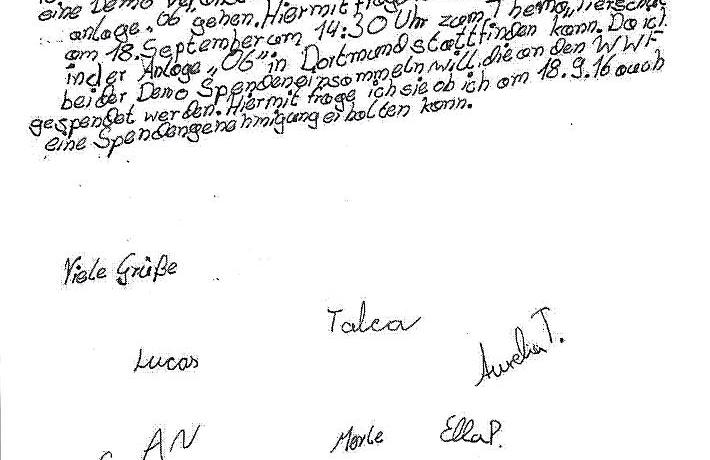 eine Demo
anlage „06 gehen. Hiermit frag
am 18. September um 14:30 Uhr zum Thema „Tierschu
in der Anlage „06". in Dortmund stattfinden kann. Da ich
bei der Demo Spenden einsammeln will, die an den WWF
gespendet werden. Hiermit frage ich sie ob ich am 18.9.16 auch
eine Spendengenehmigung erhalten kann.
Viele Grüße
Talea
Lucas
Aurelia T.
AN
Merle
Ella P.